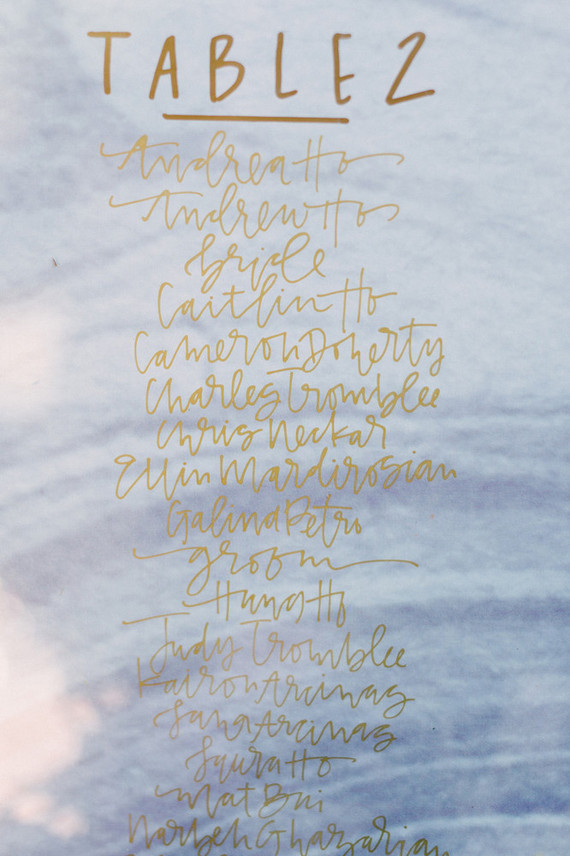 TABLE 2
Andrea Ho
Andrew Ho
bride
Caitlin Ho
Cameron Doherty
Charles Tromblee
Chris Neckar
Ellin Mardirosian
Galina Petro
groom
Hung Ho
Judy Tromblee
Kairon Arcinas
Lana Arcinas
Laura Ho
Mat Bui
Narbeh Ghazarian